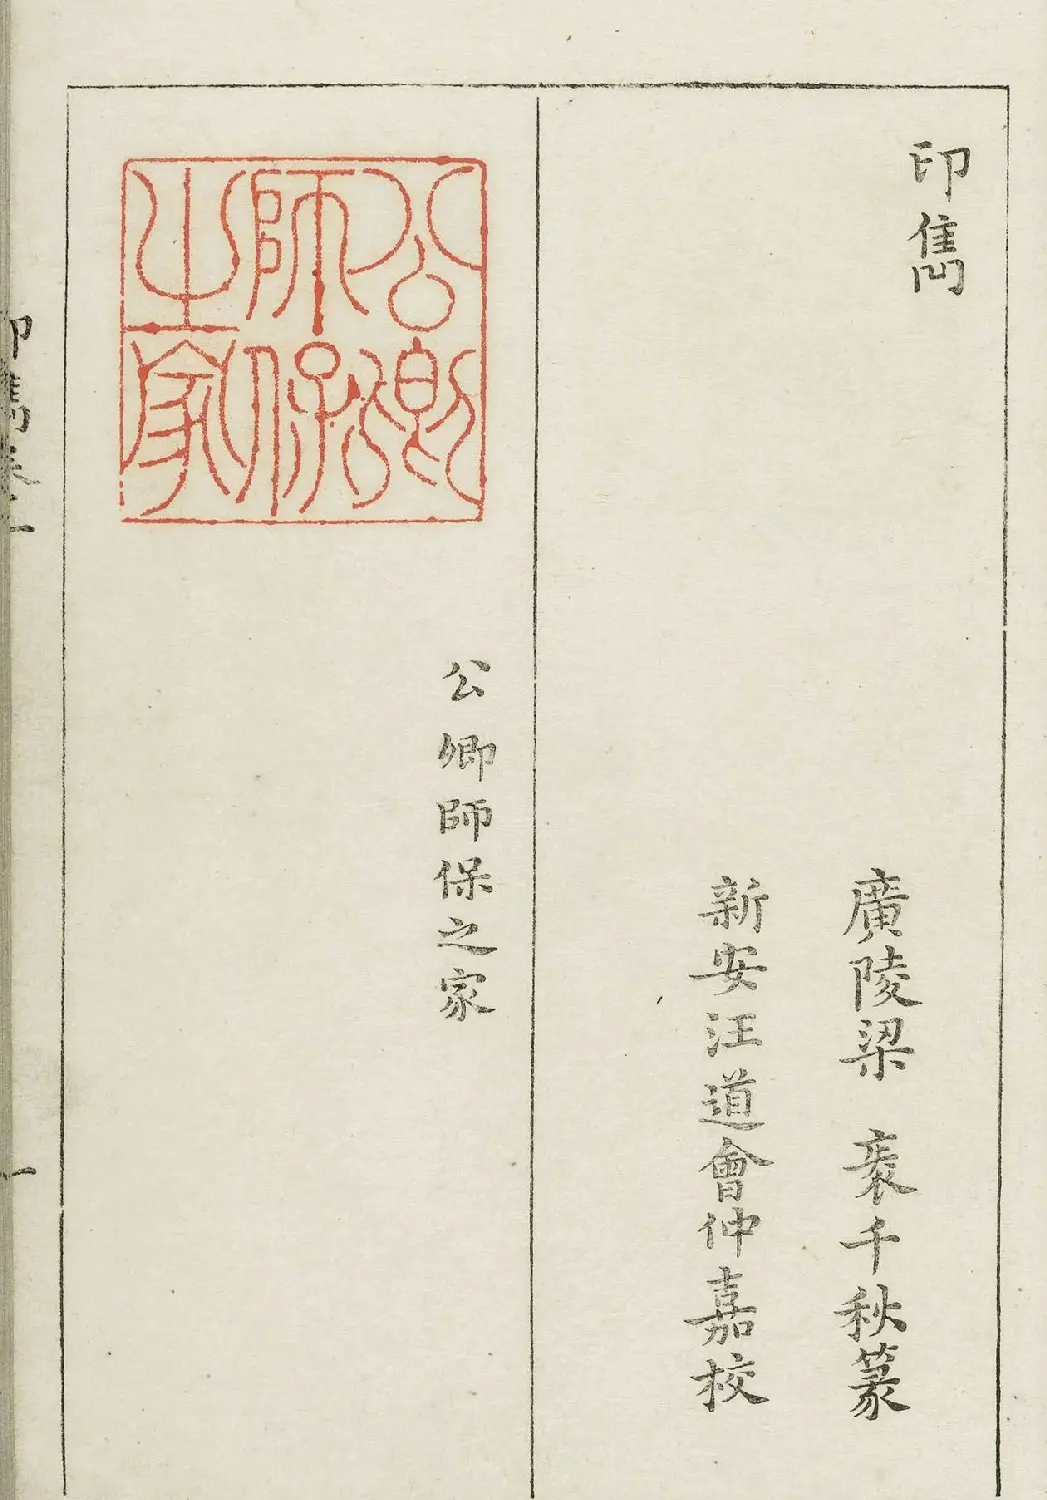 印雋
廣陵梁 袠千秋篆
新安汪道會仲嘉校
公卿師保之家
公卿師保之家
印雋卷一
一